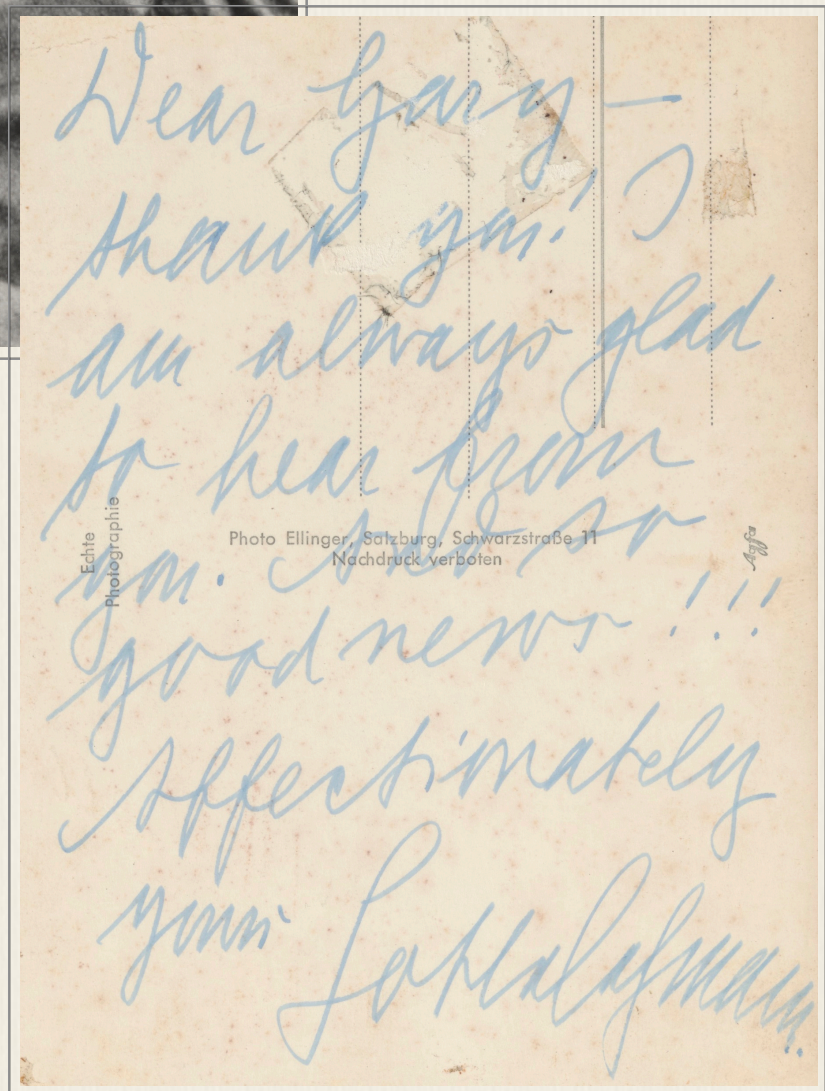 Dear Gary —
thank you! I
am always glad
to hear from
you. And so
good news !!!
Affectionately
yours Lotte Lehmann
Echte
Photographie
Photo Ellinger, Salzburg, Schwarzstraße 11
Nachdruck verboten